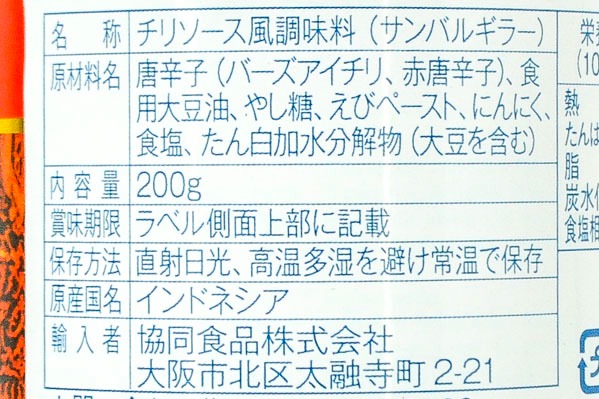 名称 チリソース風調味料（サンバルギラー）
原材料名 唐辛子（バーズアイチリ、赤唐辛子）、食
用大豆油、やし糖、えびペースト、にんにく、
食塩、たん白加水分解物（大豆を含む）
内容量 200g
賞味期限 ラベル側面上部に記載
保存方法 直射日光、高温多湿を避け常温で保存
原産国名 インドネシア
輸入者 協同食品株式会社
大阪市北区太融寺町 2-21
栄
(10
熱
たんぱ
脂
炭水化
食塩相